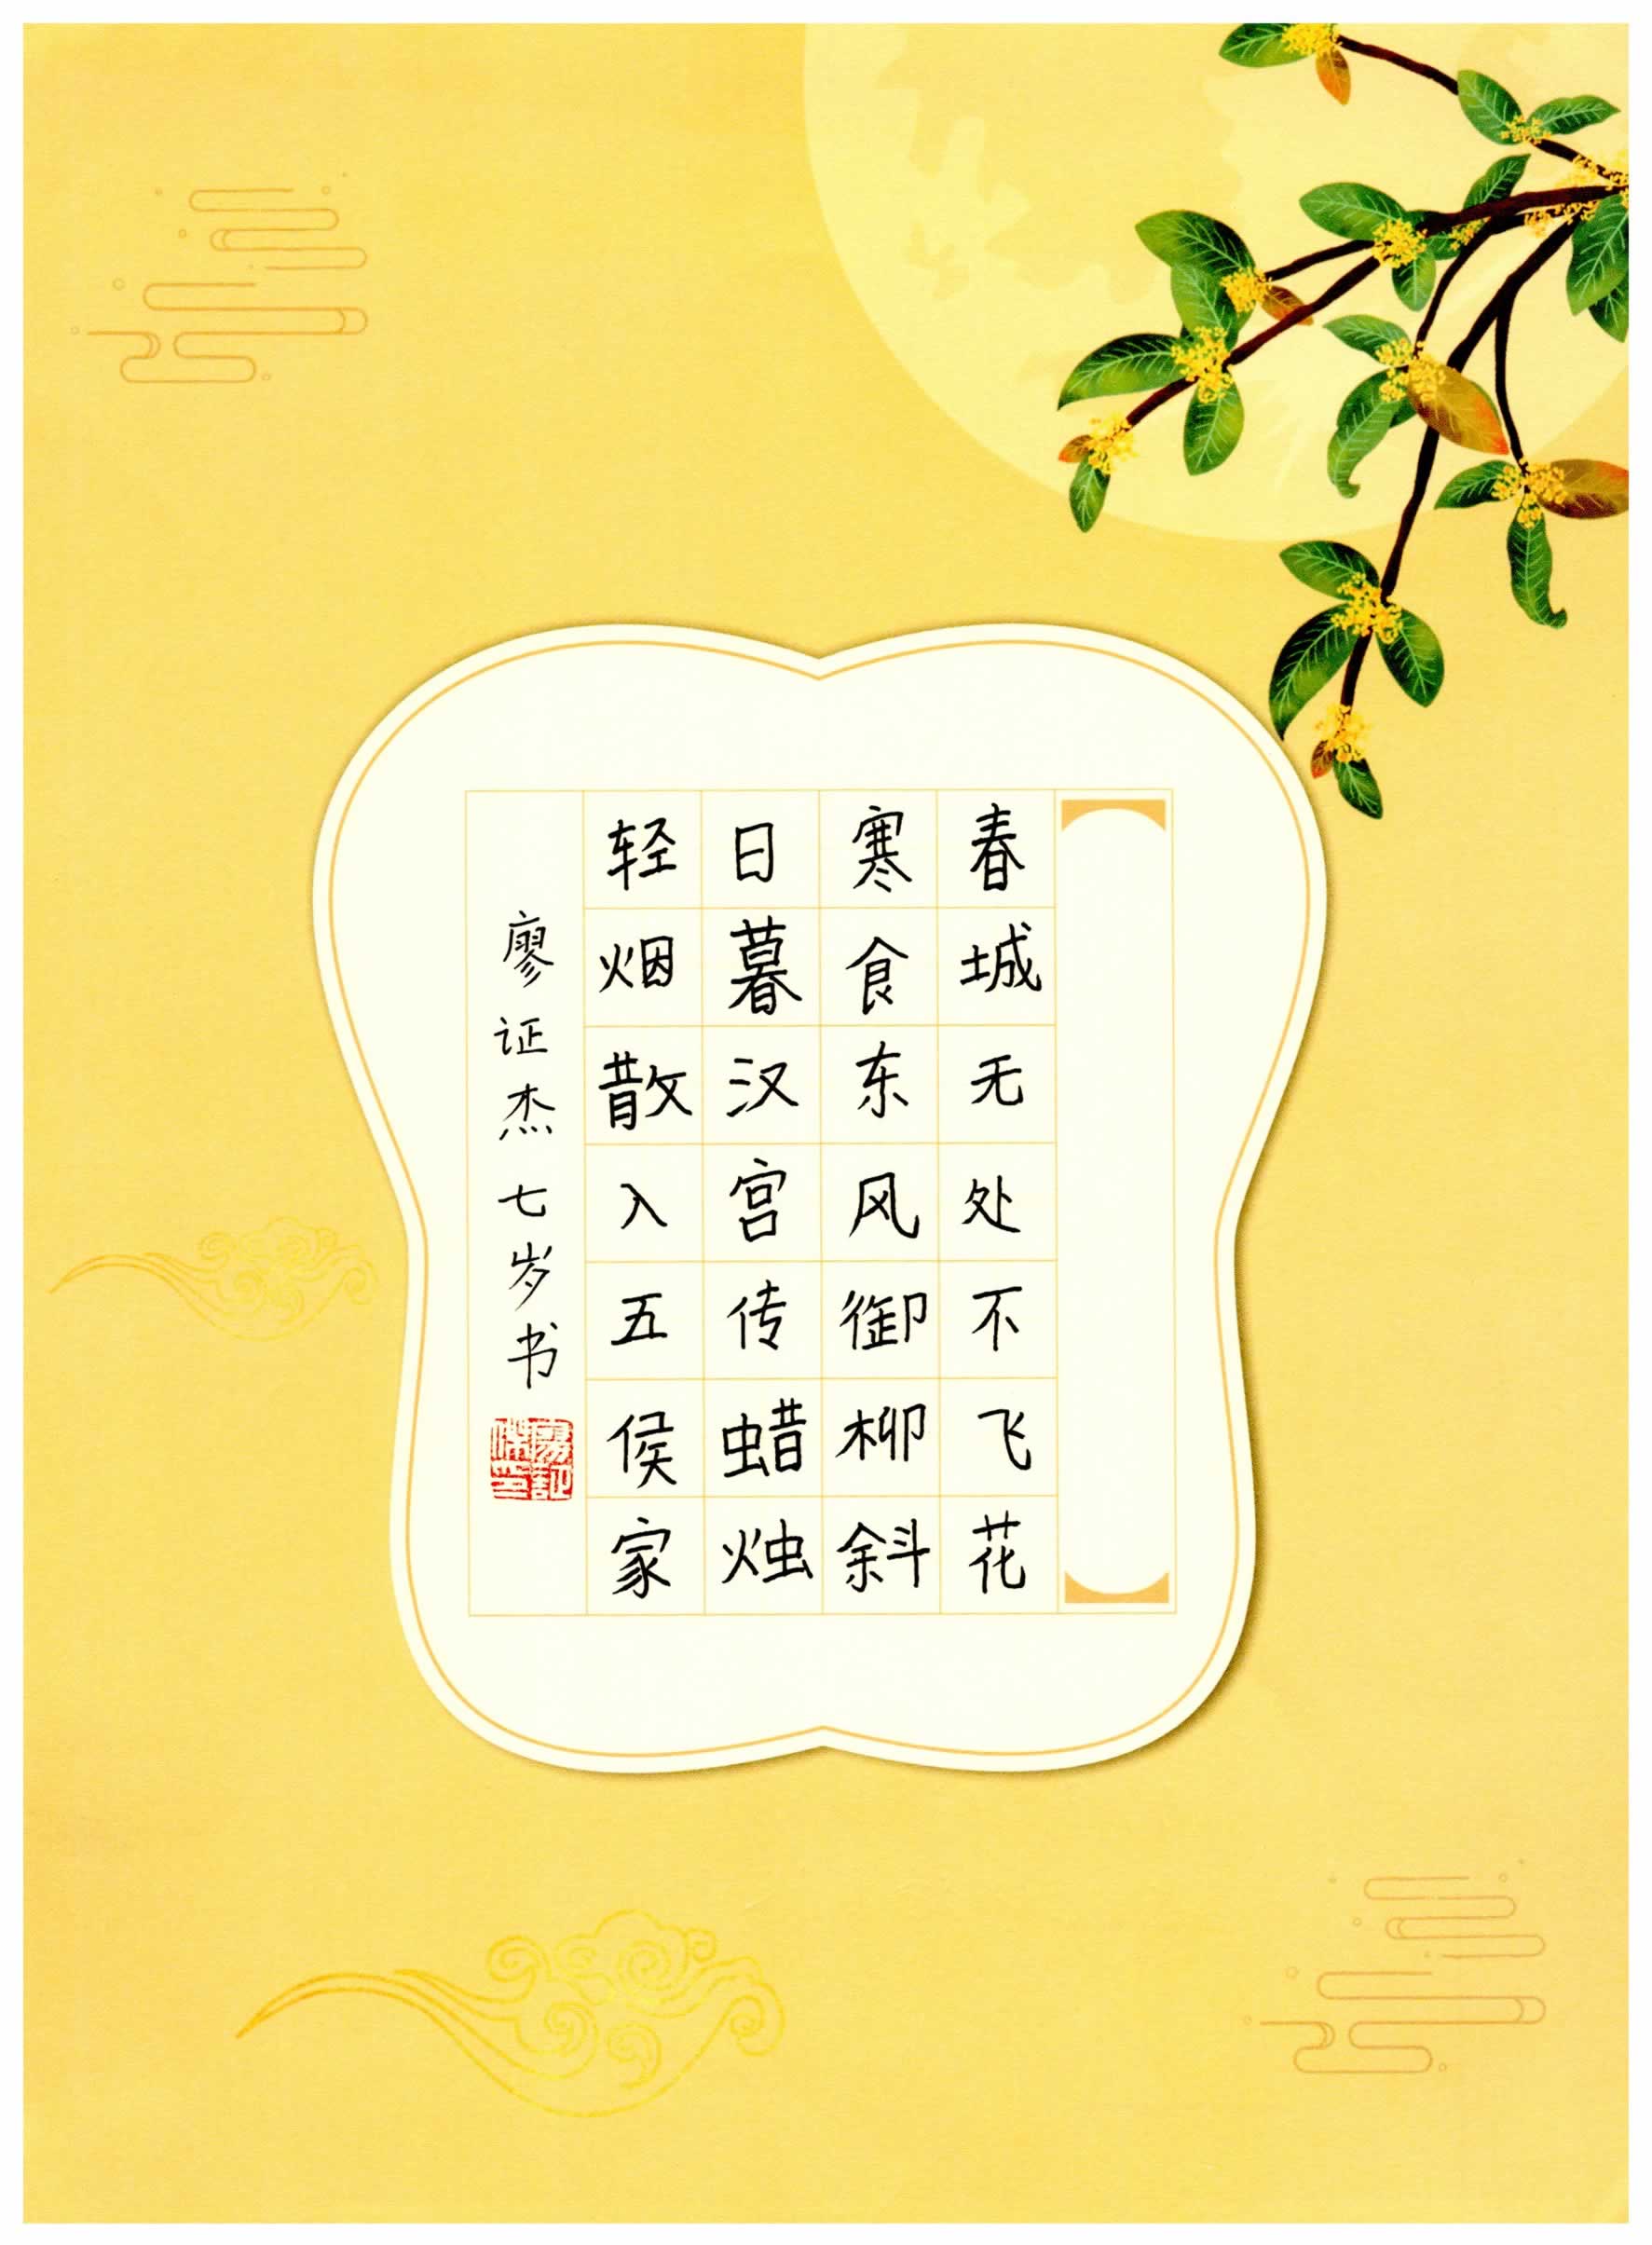 春城无处不飞花
寒食东风御柳斜
日暮汉宫传蜡烛
轻烟散入五侯家
廖证杰七岁书